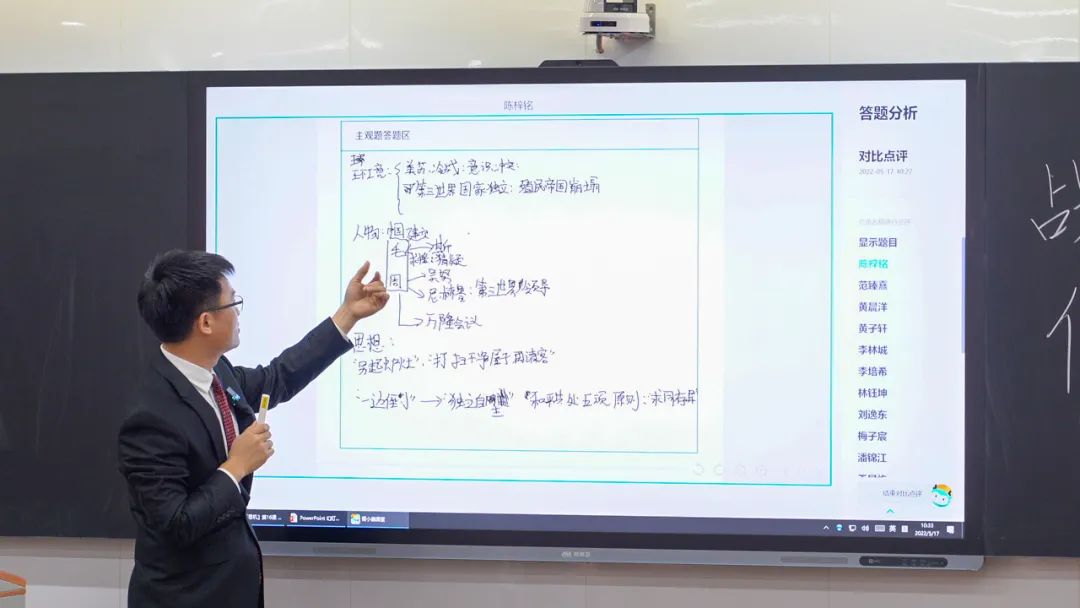 陈梓铭
主观题答题区
环境: 美苏冷战: 意识冲突
第三世界国家独立: 殖民帝国崩塌
人物: 中国建设
毛 → 斯
求援: 猜疑
周 → 吴努
尼赫鲁: 第三世界领导
→ 万隆会议
思想:
"另起炉灶", "打扫干净屋子再请客"
"一边倒" → "独立自主" "和平共处五项原则: 求同存异
答题分析
对比点评
2022-05-17 10:27
显示题目
陈梓铭
范臻熹
黄晨洋
黄子轩
李林城
李培希
林钰坤
刘逸东
梅子宸
潘锦江
结束对比点评
PowerPoint 幻灯...
英
10:33
2022/5/17
战